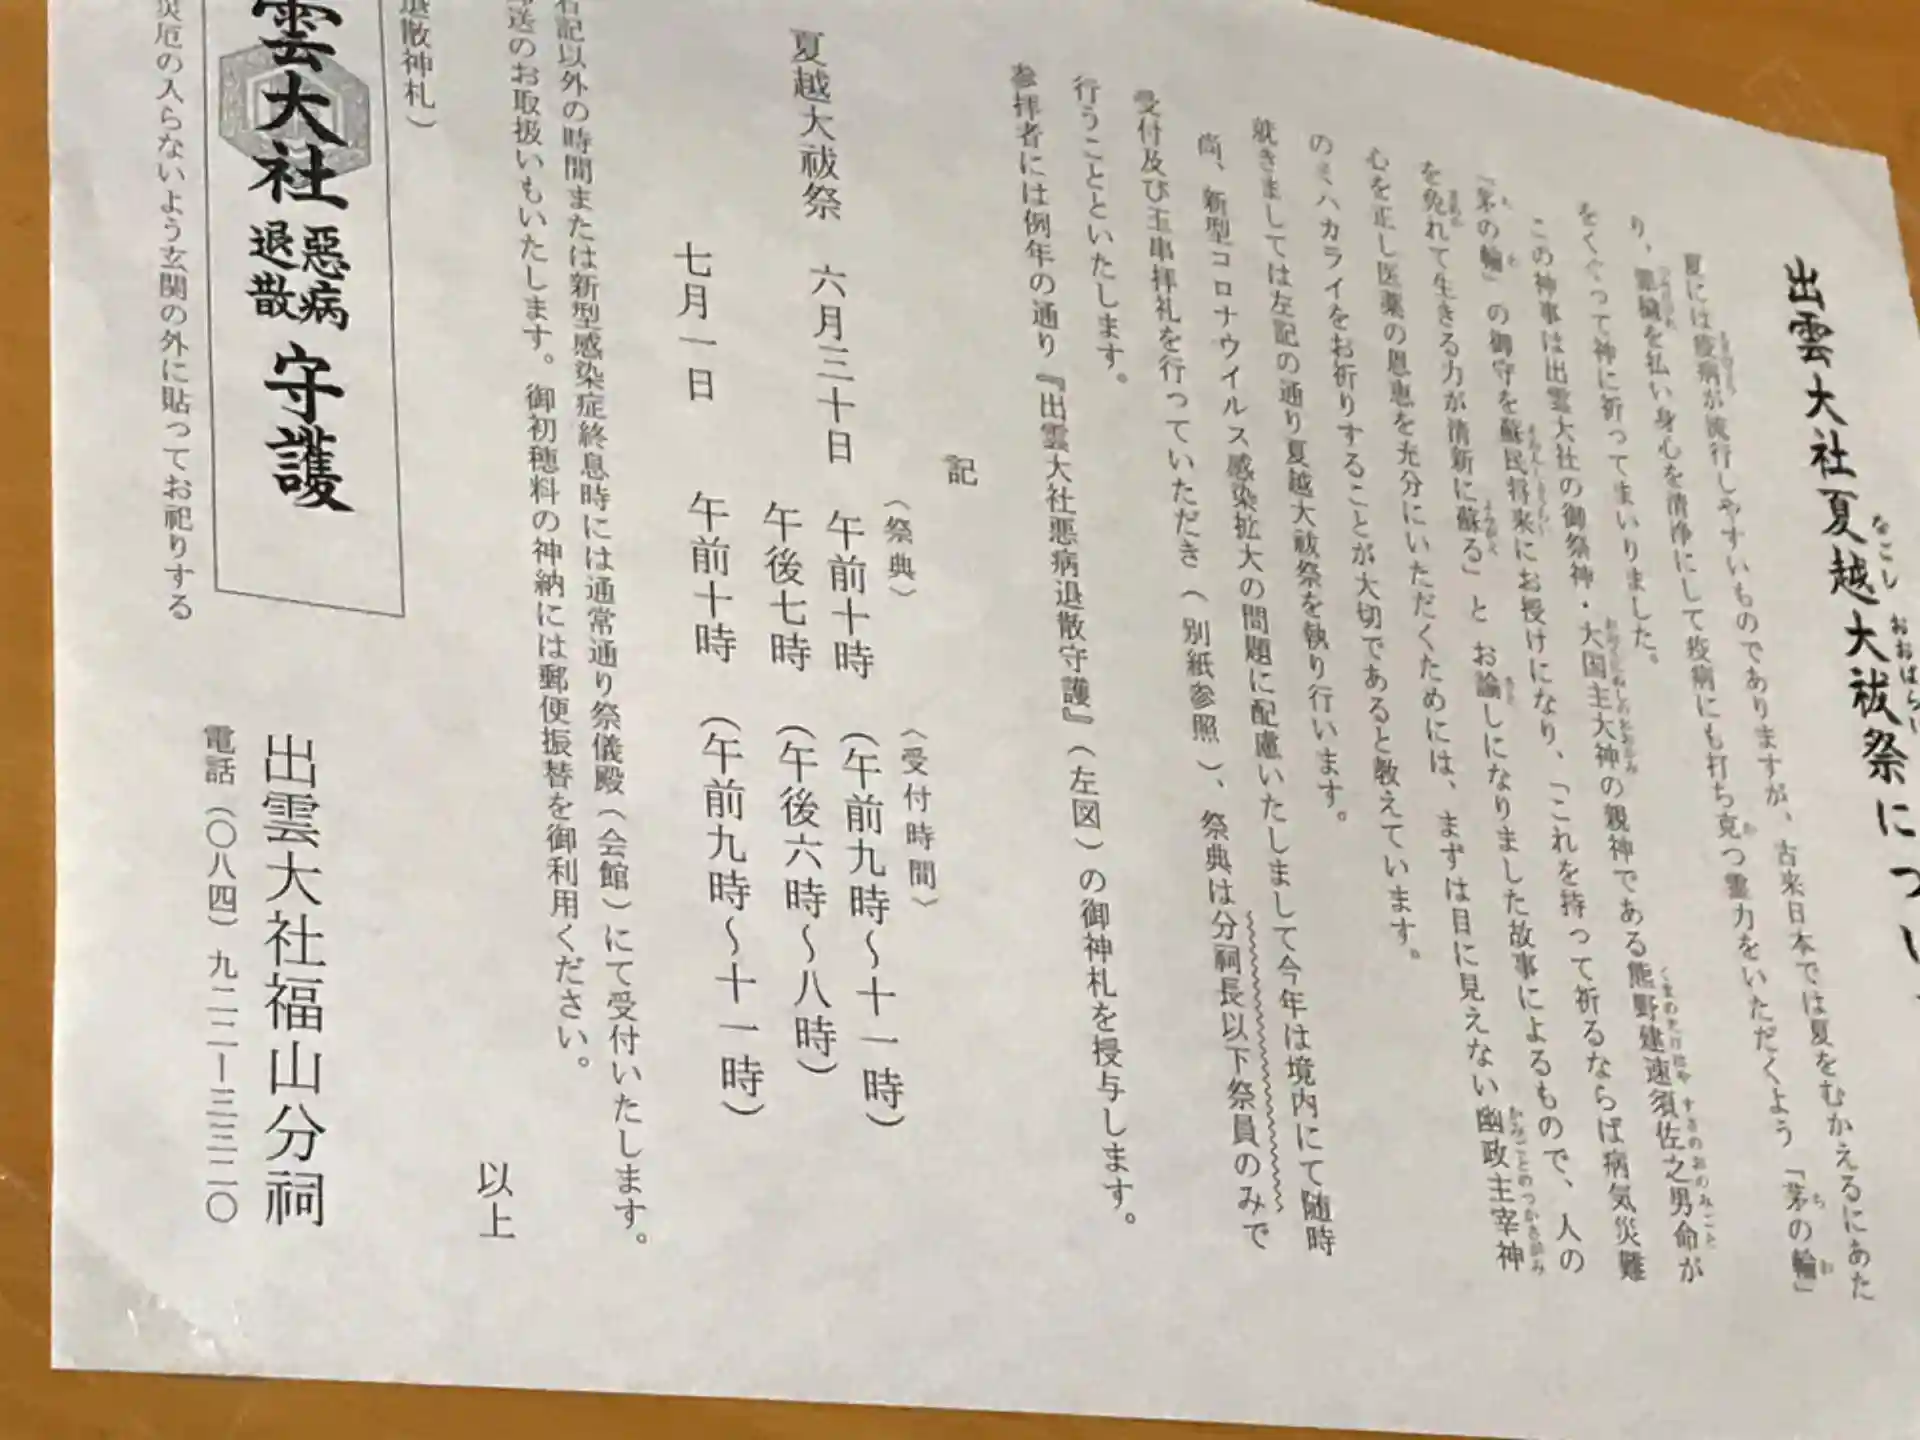 出雲大社夏越大祓祭につい
なごし おおばらい
夏には疫病が流行しやすいものでありますが、古来日本では夏をむかえるにあた
り、罪穢を払い身心を清浄にして疫病にも打ち克つ霊力をいただくよう「茅の輪」
をくぐって神に祈ってまいりました。
この神事は出雲大社の御祭神・大国主大神の親神である熊野建速須佐之男命が
『茅の輪』の御守を蘇民将来にお授けになり、「これを持って祈るならば病気災難
を免れて生きる力が清新に蘇る」と お諭しになりました故事によるもので、人の
心を正し医薬の恩恵を充分にいただくためには、まずは目に見えない幽政主宰神
のミハカライをお祈りすることが大切であると教えています。
就きましては左記の通り夏越大祓祭を執り行います。
尚、新型コロナウイルス感染拡大の問題に配慮いたしまして今年は境内にて随時
受付及び玉串拝礼を行っていただき(別紙参照)、祭典は分祠長以下祭員のみで
行うことといたします。
参拝者には例年の通り『出雲大社悪病退散守護』(左図)の御神札を授与します。
記
(祭典) (受付時間)
夏越大祓祭 六月三十日 午前十時 (午前九時~十一時)
午後七時 (午後六時~八時)
七月一日 午前十時 (午前九時~十一時)
記以外の時間または新型感染症終息時には通常通り祭儀殿(会館)にて受付いたします。
送のお取扱いもいたします。御初穂料の神納には郵便振替を御利用ください。
以上
退散神札)
雲大社 惡病退散 守護
災厄の入らないよう玄関の外に貼ってお祀りする
出雲大社福山分祠
電話(〇八四)九二二ー三三二〇